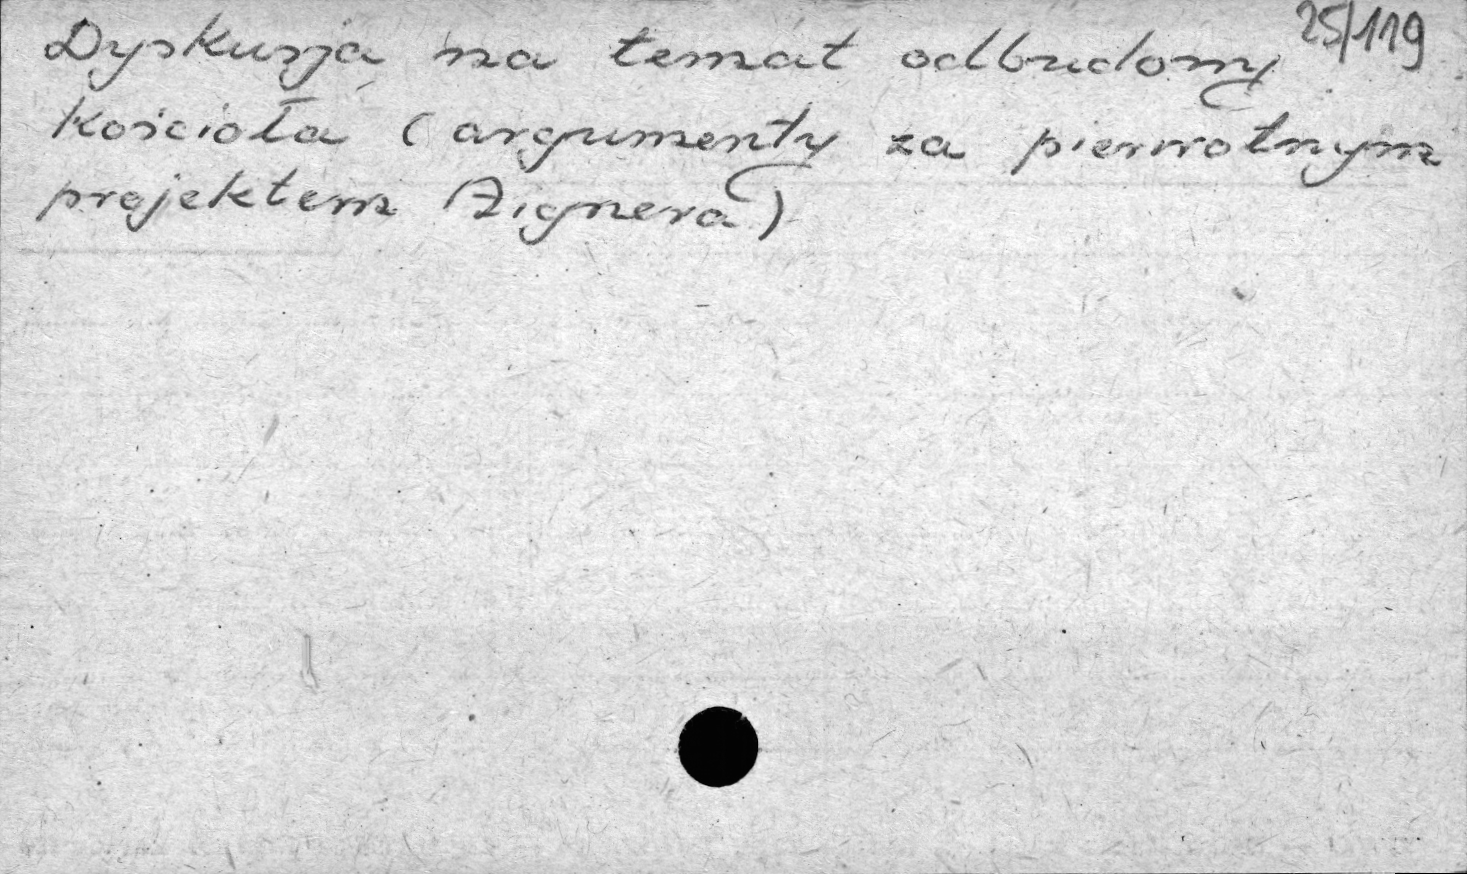 25/119
Dyskusja na temat odbudowy
kościoła (argumenty za pierwotnym
projektem Aignera)